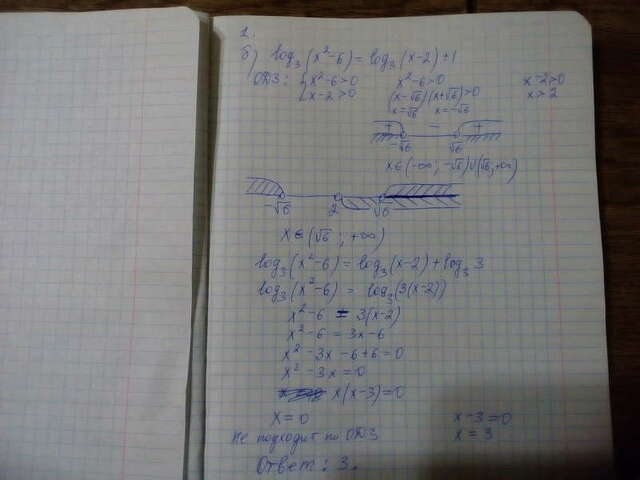 1.
б) log₃(x²-6) = log₃(x-2)+1
ОДЗ: { x²-6>0 x²-6>0 x-2>0
x-2>0 (x-√6)(x+√6)>0 x>2
x=√6 x=-√6
+ - +
-√6 √6
x∈(-∞; -√6)∪(√6; +∞)
-√6 2 √6
x∈(√6; +∞)
log₃(x²-6) = log₃(x-2)+log₃3
log₃(x²-6) = log₃(3(x-2))
x²-6 = 3(x-2)
x²-6 = 3x-6
x²-3x-6+6=0
x²-3x=0
x(x-3)=0
x=0 x-3=0
Не подходит по ОДЗ x=3
Ответ: 3.